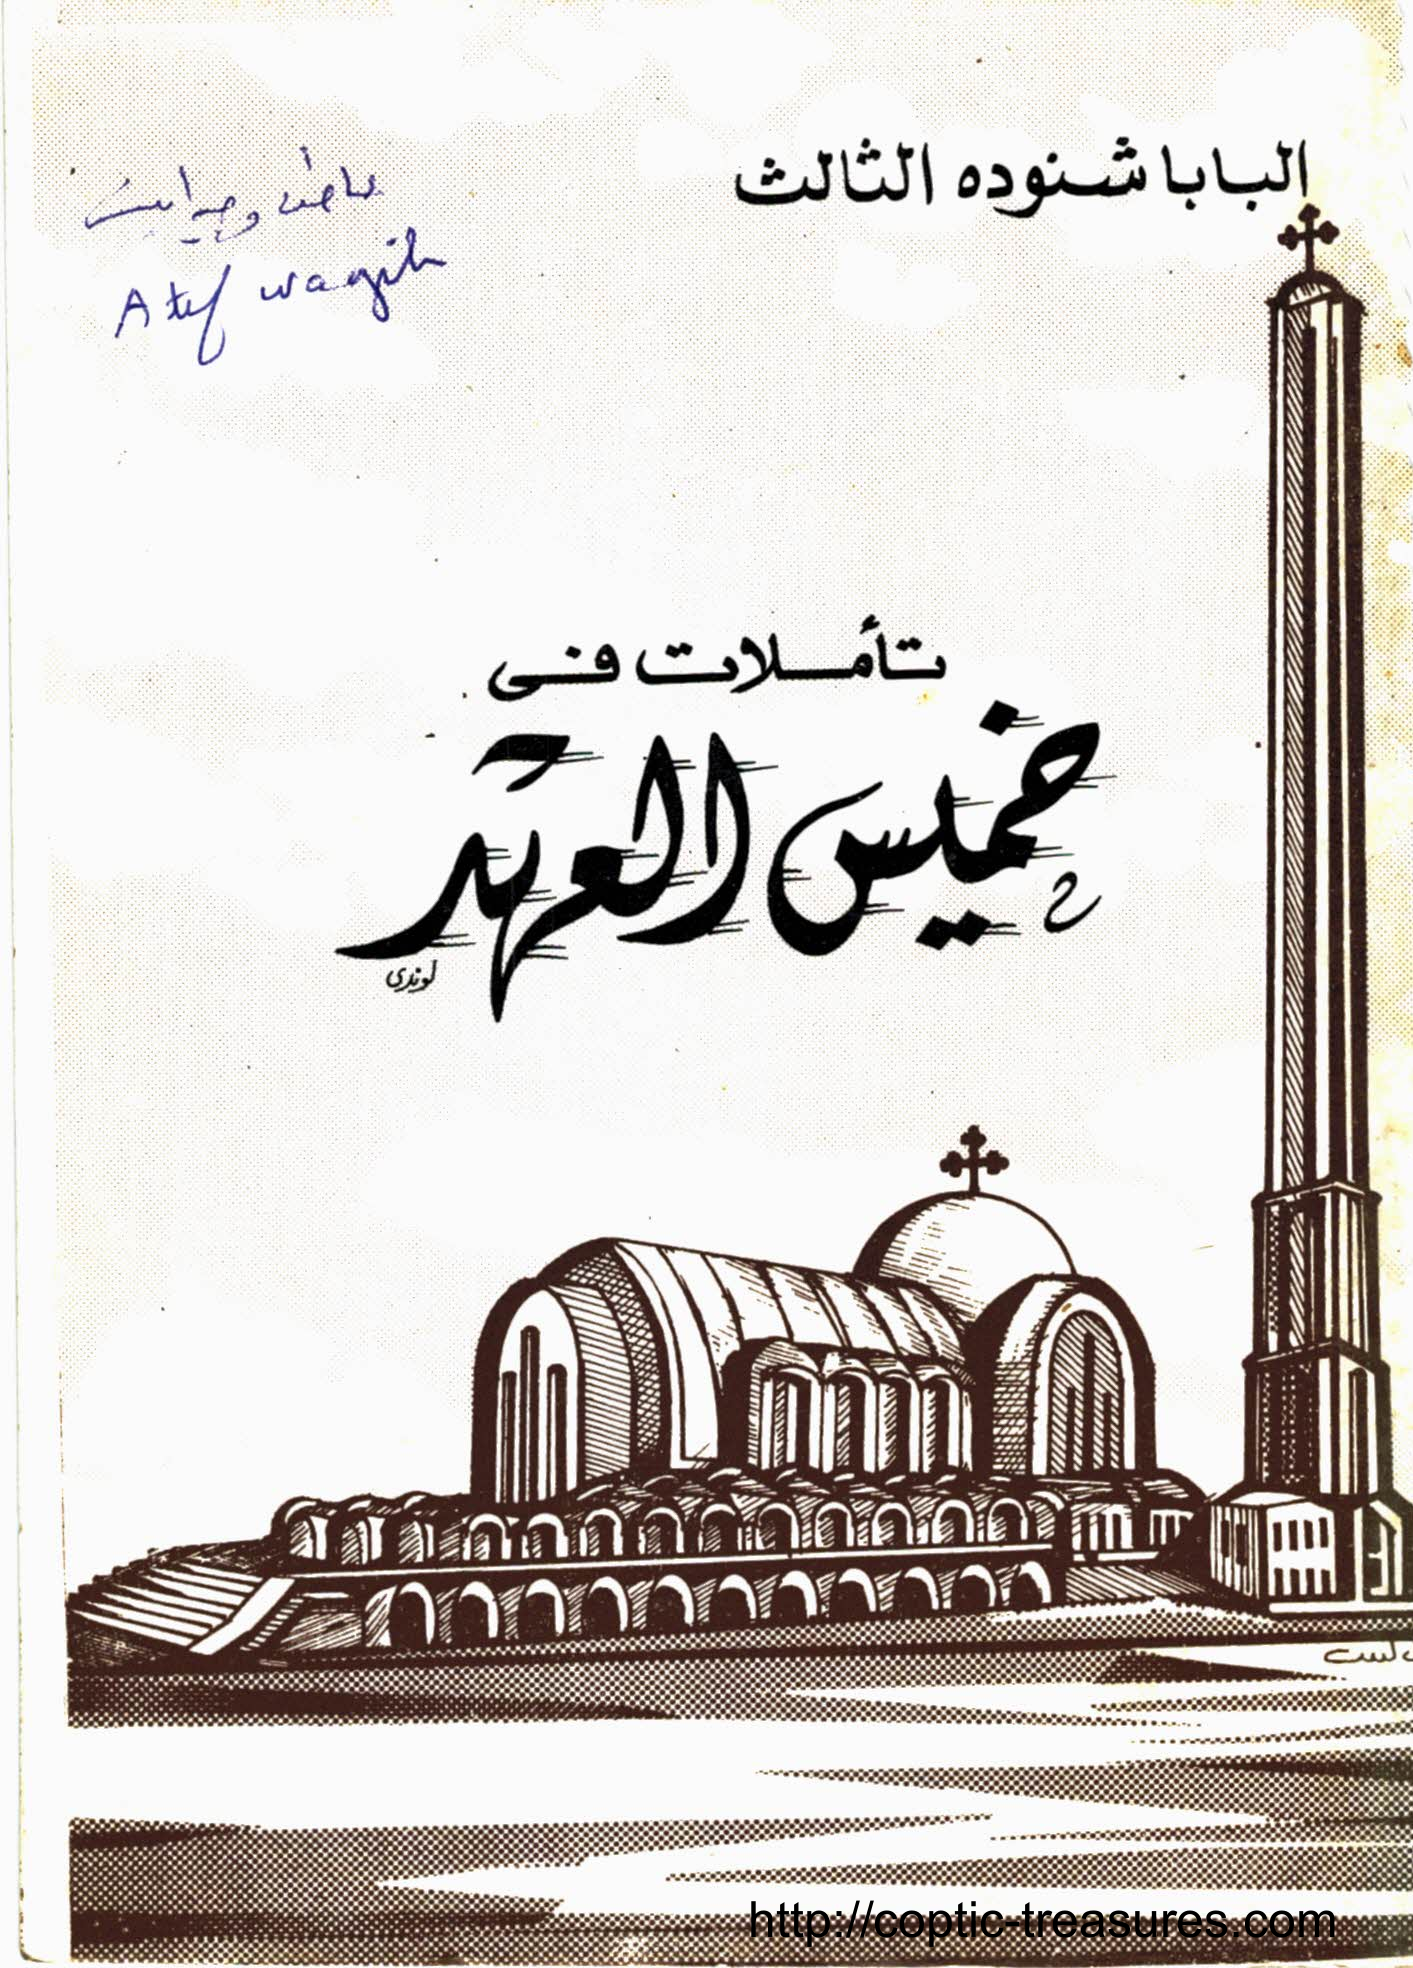 البابا شنوده الثالث
عاطف وجيه
Atef wagih
تأملات فى
خميس العهد
لوندى
http://coptic-treasures.com